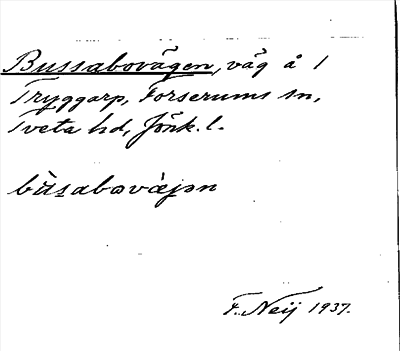 Bussabovägen, väg å 1
Tryggarp, Forserums sn,
Tveta hd, Jönk. l.
bùsabovæ̀jən
F. Neij 1937.